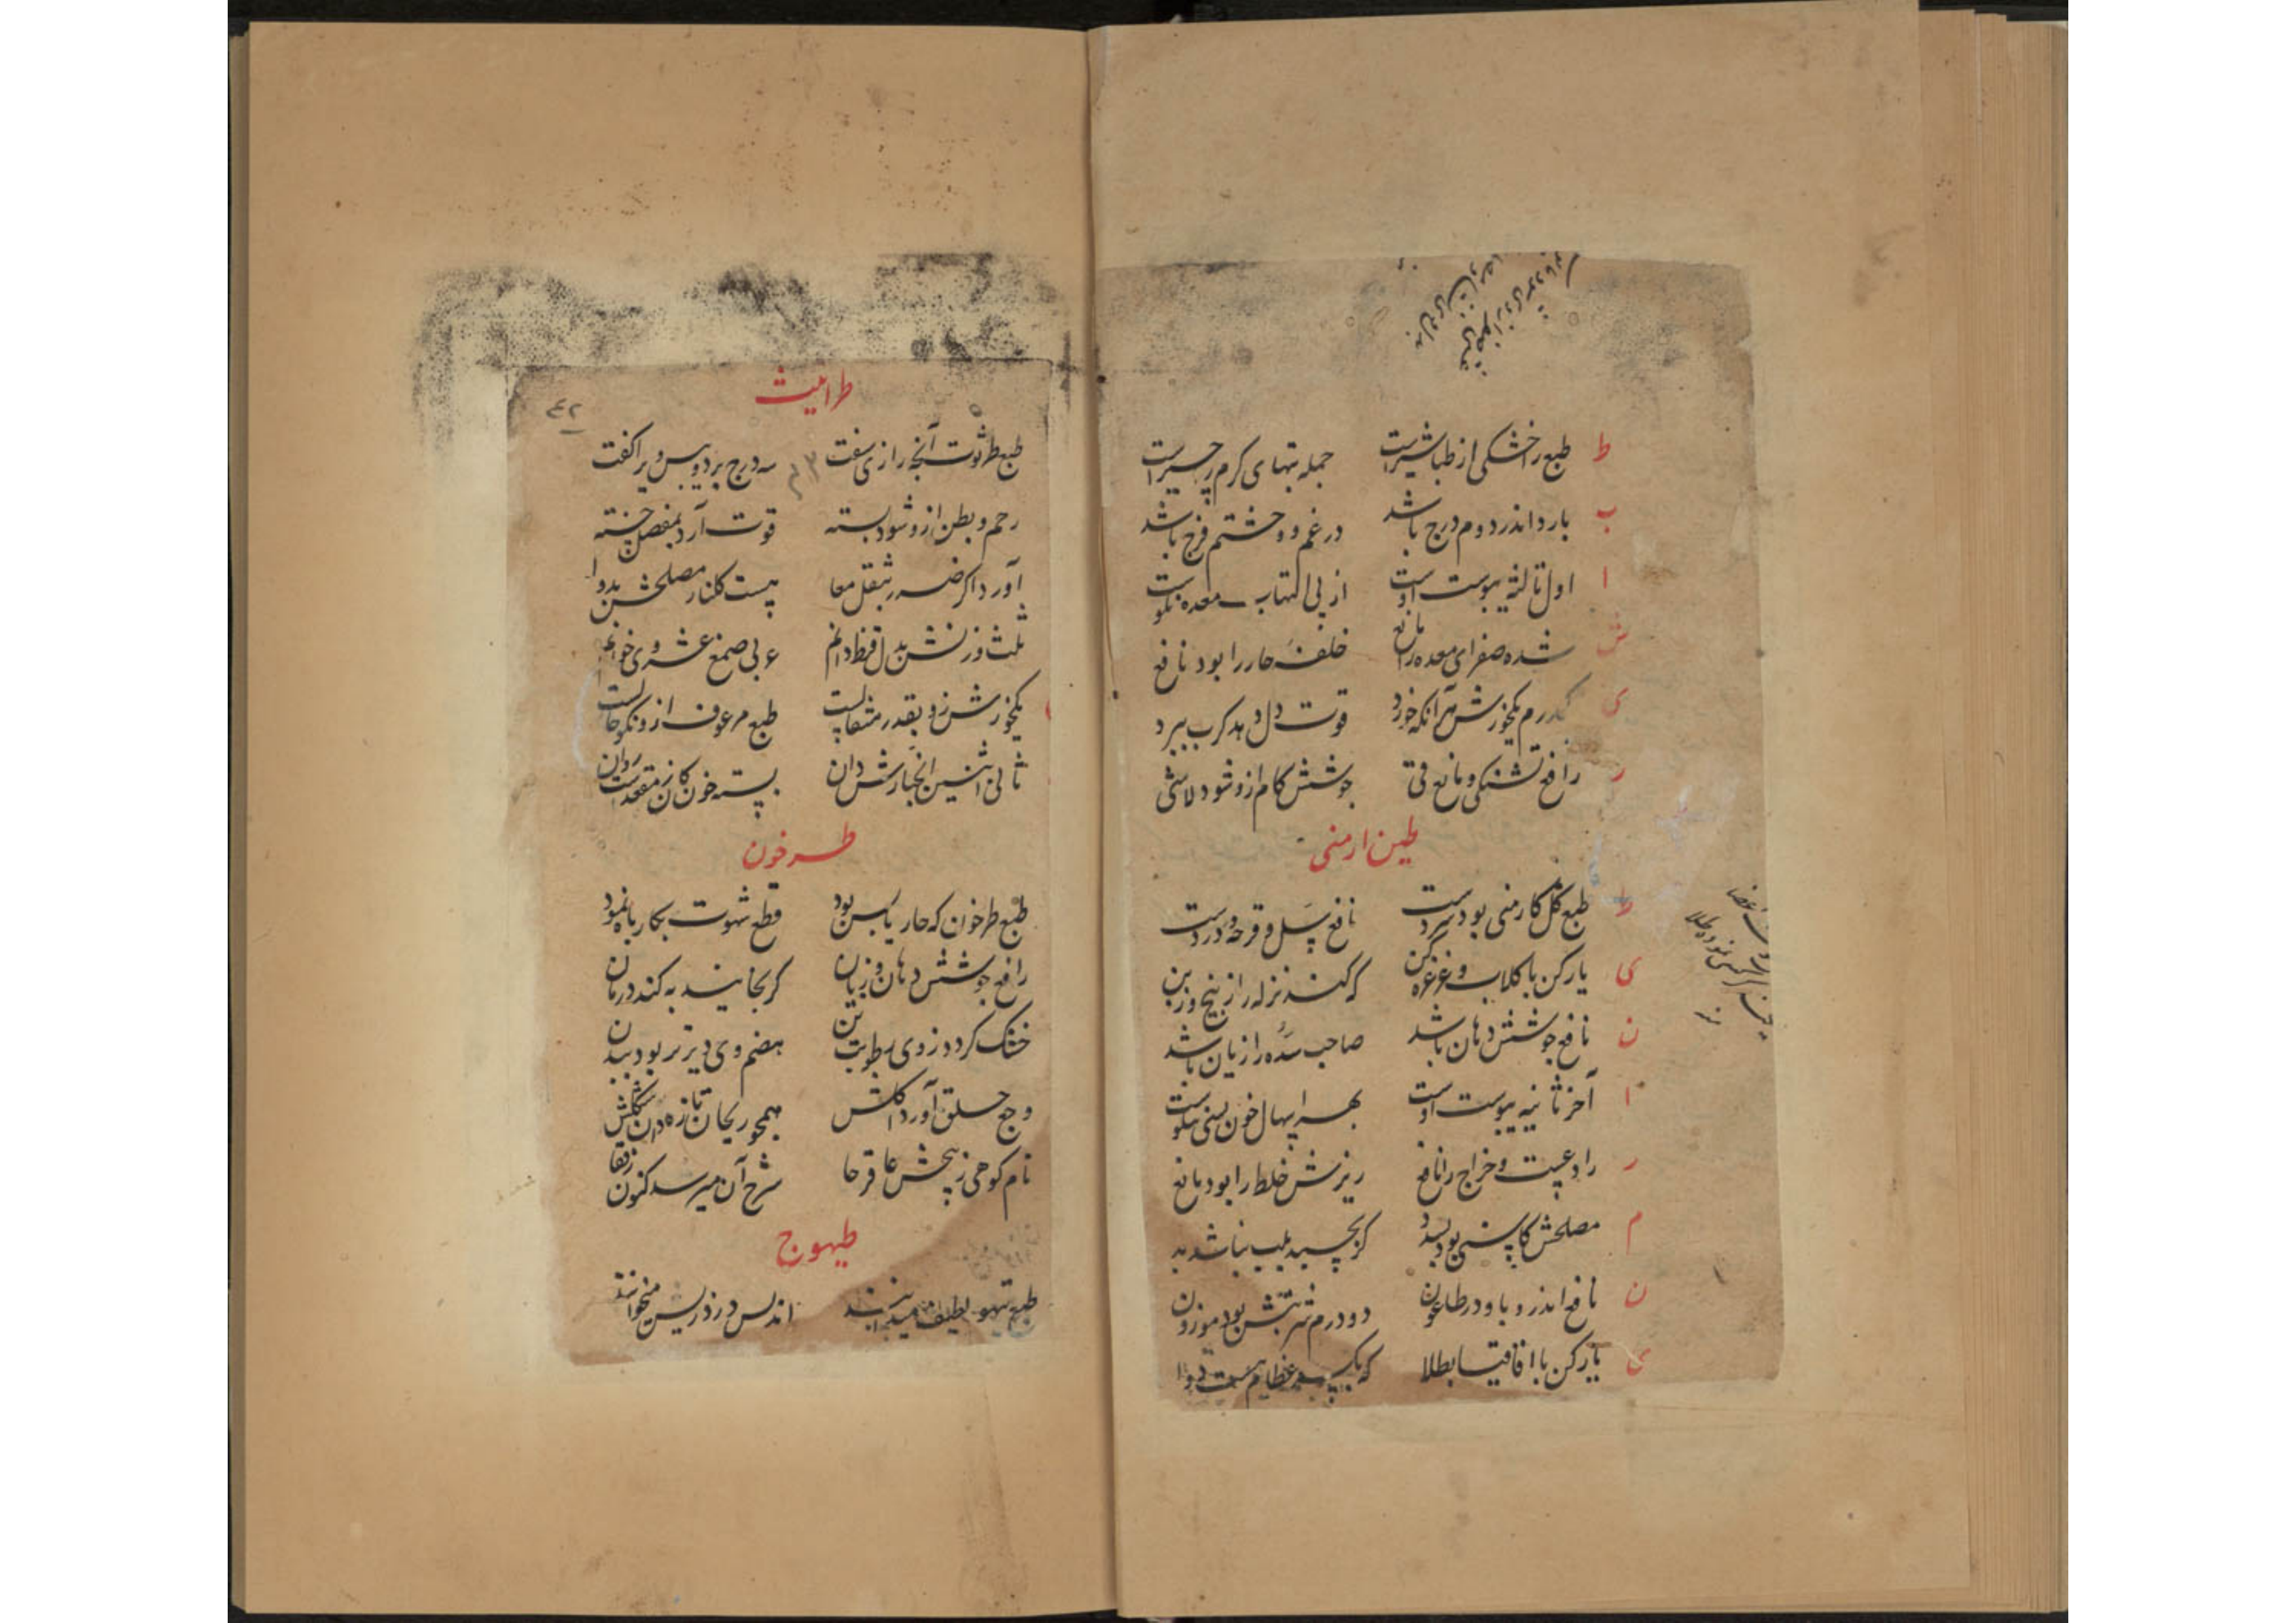 ط طبع را خشکی از طباشیرست جمله تبهای کرم را چیرست
ب بارد اندر دوم درج باشد در غم و وحشتم فرج باشد
ا اول ثالثه یبوست اوست از پی التهاب معده نکوست
ش شده صفرای معده را مانع خلفه حار را بود نافع
ی یکدرم یکخورش هر آنکه خورد قوت دل دهد کرب ببرد
ر رافع تشنکی و مانع قی جوشش کام ازو شود لاشی
طین ارمنی
ط طبع کل کارمنی بود سردست نافع سل و قرحه و دردست
ی یار کن با کلاب و غرغره کن که کند نزله را ز بیخ و ز بن
ن نافع جوشش دهان باشد صاحب سده را زیان باشد
ا آخر ثانیه یبوست اوست بهر اسهال خون بسی نیکوست
ر رادعست و خراج را نافع ریزش خلط را بود مانع
م مصلحش کاسنی بود بسد کر بچسبد بلب نباشد بد
ن نافع اندر وبا و در طاعون دو درم شربتش بود موزون
ی یار کن با اقاقیا بطلا که بکسر عظام هست دوا
طراثیث
۴۲
طبع طرثوث آنچه رازی سفت سه درج برد و یبس ویرا کفت
رحم و بطن ازو شود بسته قوت آرد بمفصل خسته
آورد اکر ضرر بثقل معا هست کلنار مصلحش بدوا
ثلث وزنش بدل قرظ دانم عربی صمغ عشر وی خوانم
یکخورش زو بقدر مثقالست طبع مرعوف ازو نکو حالست
ثانی اثنین انجبارش دان بسته خون کان ز مقعدست روان
طرخون
طبع طرخوان که حار یابس بود قطع شهوت بکار باه نمود
رافع جوشش دهان و زبان کر بخایند به کند درمان
خشک کردد ز وی رطوبت تن هضم وی دیرتر بود ببدن
وجع حلق آورد اکلش همچو ریحان تازه دان شکلش
نام کوهی ز بیخش عاقرحا شرح آن میرسد کنون رفقا
طیهوج
طبع تیهو لطیف میدانند